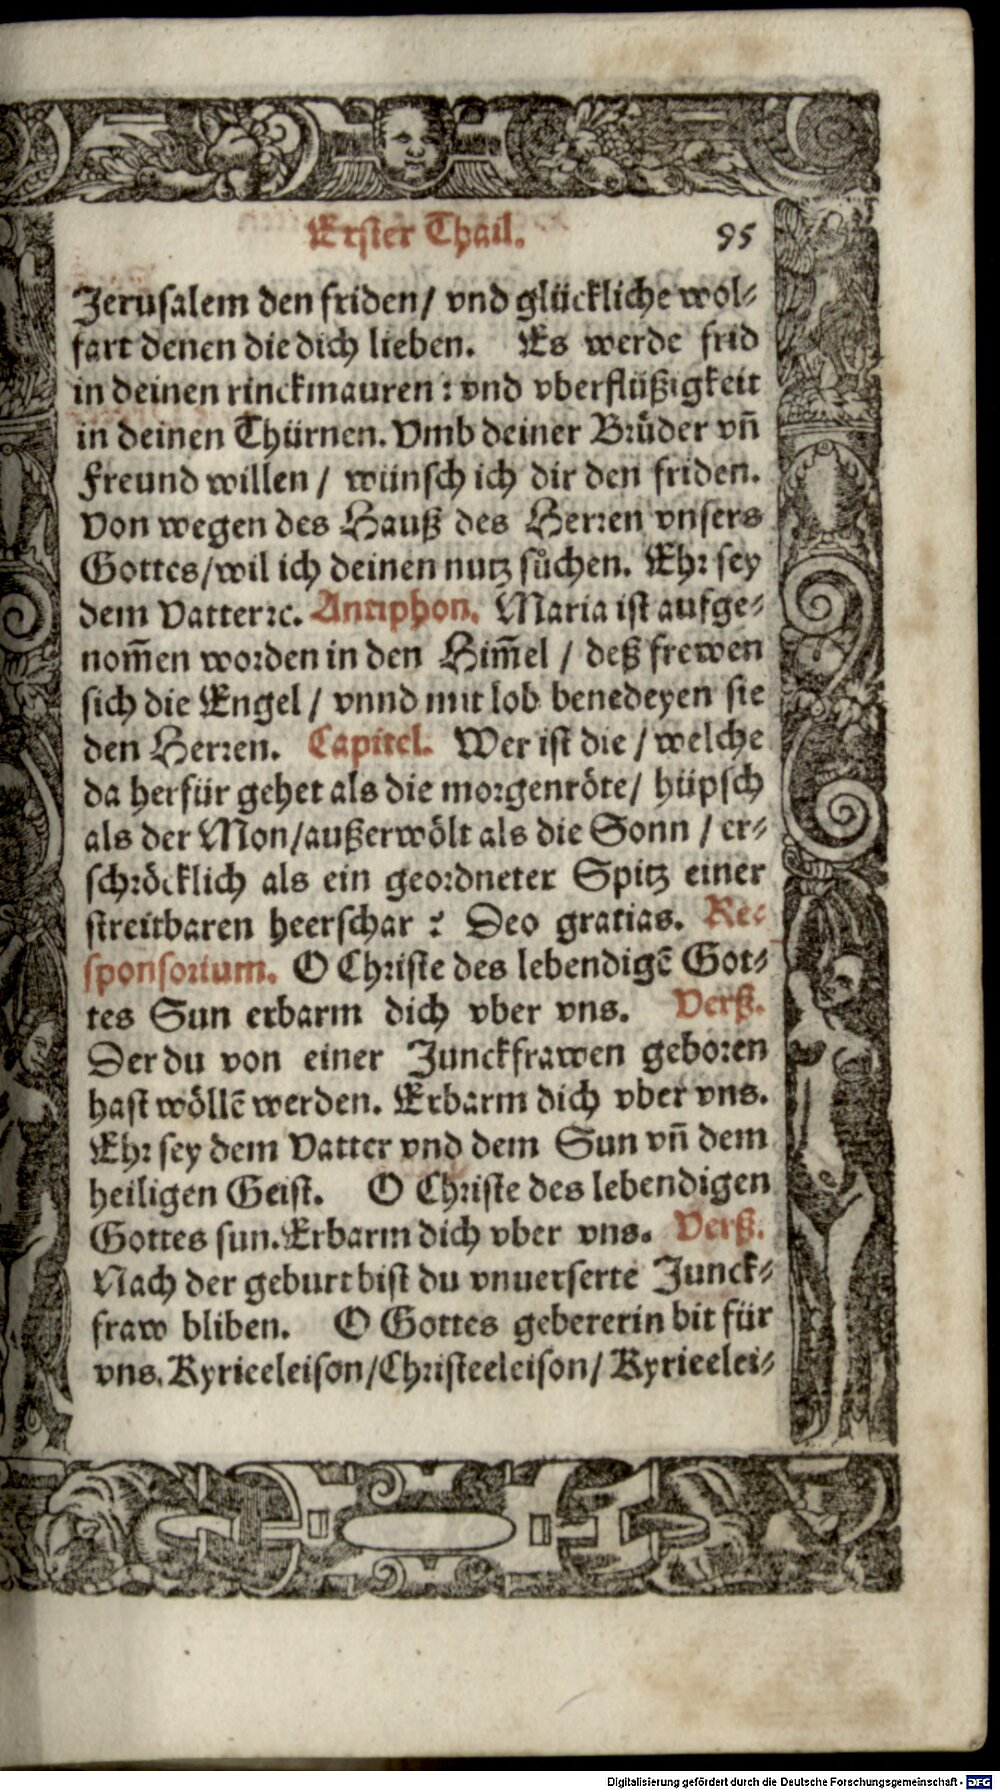 Erster Thail. 95
Jerusalem den friden / vnd glückliche wol⸗
fart denen die dich lieben. Es werde frid
in deinen rinckmauren : vnd vberflüßigkeit
in deinen Thürnen. Vmb deiner Brůder vñ
Freund willen / wünsch ich dir den friden.
Von wegen des Hauß des Herren vnsers
Gottes/wil ich deinen nutz sůchen. Ehr sey
dem Vatter ꝛc. Antiphon. Maria ist aufge⸗
nom̃en worden in den Him̃el / deß frewen
sich die Engel / vnnd mit lob benedeyen sie
den Herren. Capitel. Wer ist die / welche
da herfür gehet als die morgenröte/ hüpsch
als der Mon/außerwölt als die Sonn / er⸗
schröcklich als ein geordneter Spitz einer
streitbaren heerschar ? Deo gratias. Re⸗
sponsorium. O Christe des lebendigẽ Got⸗
tes Sun erbarm dich vber vns. Verß.
Der du von einer Junckfrawen geboren
hast wöllẽ werden. Erbarm dich vber vns.
Ehr sey dem Vatter vnd dem Sun vñ dem
heiligen Geist. O Christe des lebendigen
Gottes sun. Erbarm dich vber vns. Verß.
Nach der geburt bist du vnuerserte Junck⸗
fraw bliben. O Gottes gebererin bit für
vns. Kyrieeleison/Christeeleison/ Kyrieelei⸗
Digitalisierung gefördert durch die Deutsche Forschungsgemeinschaft - DFG